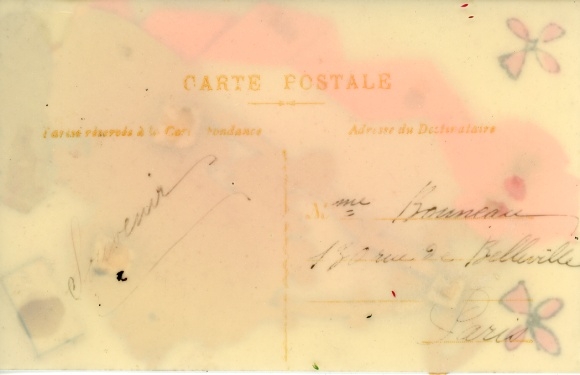 CARTE POSTALE
Partie réservée à la Correspondance
Adresse du Destinataire
Souvenir
Mme Bonneau
rue de Belleville
Paris